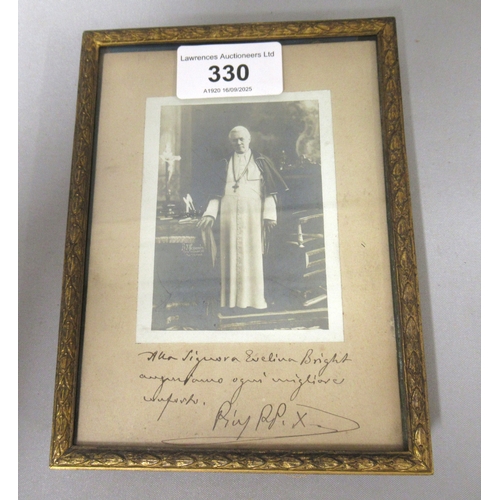 Lawrences Auctioneers Ltd
330
A1920 16/09/2025
Alla Signora Evelina Bright
auguriamo ogni migliore
conforto.
Pius PP. X.